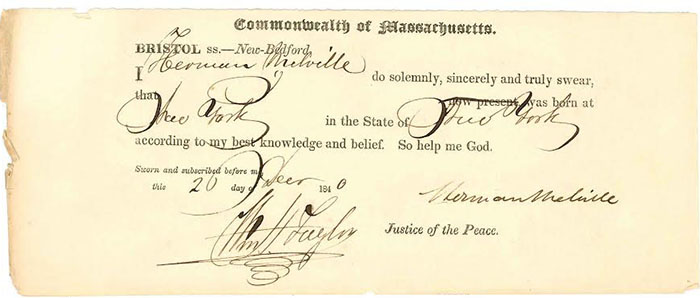 Commonwealth of Massachusetts.
BRISTOL ss.—New-Bedford,
I Herman Melville do solemnly, sincerely and truly swear,
that now present, was born at
New York in the State of New York
according to my best knowledge and belief. So help me God.
Sworn and subscribed before me
this 26 day of Decr 1840
Herman Melville
Wm H Taylor
Justice of the Peace.